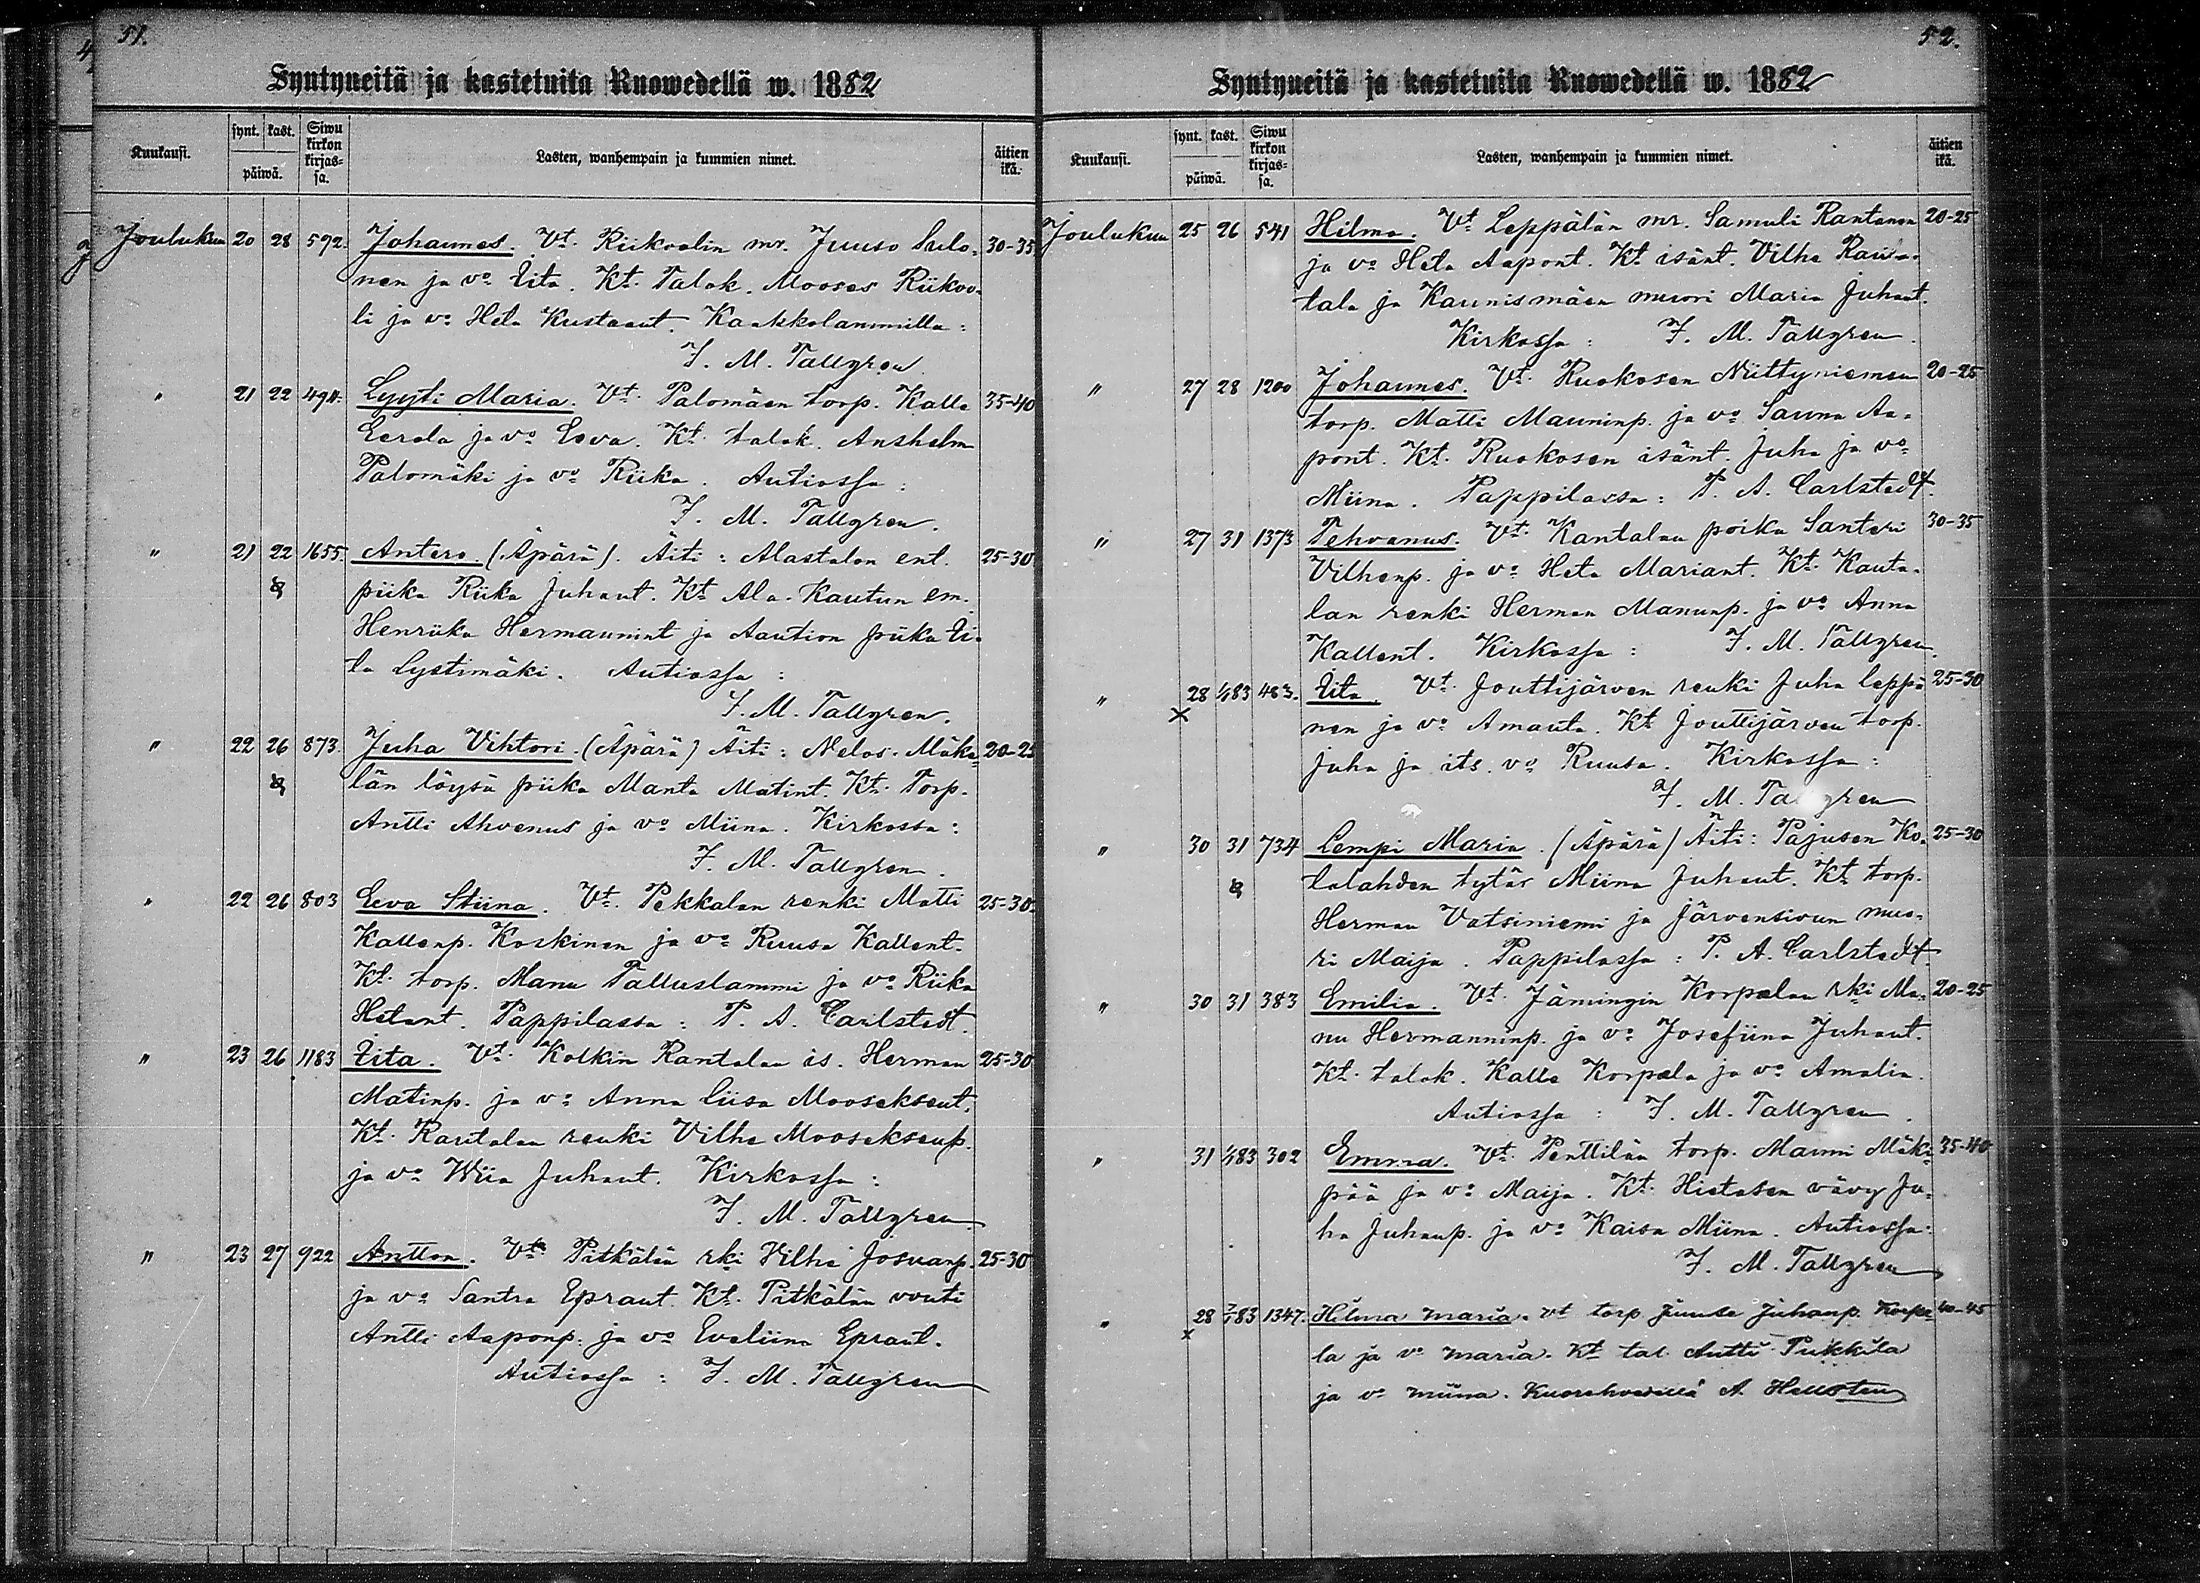 51.
Syntyneitä ja kastetuita Ruowedellä w. 1882
Kuukausi. synt. kast. päiwä. Siwu kirkon kirjas- sa. Lasten, wanhempain ja kummien nimet. äitien ikä.
Joulukuu 20 28 592. Johannes. Vt. Riikoolin mr. Juuso Sulo- 30-35
nen ja vo Eita. Kt. Talok. Mooses Riikoo-
li ja vo Heta Kustaant. Kaakkolammilla:
F. M. Tallgren
" 21 22 494. Lyyti Maria. Vt. Palomäen torp. Kalle 35-40
Eerola ja vo Eeva. Kt. talok. Anshelm
Palomäki ja vo Riika. Autiossa:
F. M. Tallgren.
" 21 22 1655. Antero (Äpärä). Äiti: Alastalon ent. 25-30
piika Riika Juhant. Kt. Ala-Kautun em.
Henriika Hermannint ja Aaution piika Ei-
la Lystimäki. Autiossa:
F. M. Tallgren.
" 22 26 873. Juha Vihtori (Äpärä) Äiti: Nelos-Mäke- 20-25
län löysä piika Manta Matint. Kt. Torp.
Antti Ahvenus ja vo Miina. Kirkossa:
F. M. Tallgren.
" 22 26 803 Eeva Stiina. Vt. Pekkalan renki Matti 25-30.
Kallenp. Koskinen ja vo Ruusa Kallent.
Kt. torp. Manu Talluslammi ja vo Riika
Hetant. Pappilassa: P. A. Carlstedt.
" 23 26 1183 Eita. Vt. Kolkin Rantalan is. Herman 25-30
Matinp. ja vo Anna Liisa Mooseksent.
Kt. Rantalan renki Vilhe Mooseksenp.
ja vo Wiia Juhant. Kirkossa:
F. M. Tallgren
" 23 27 922 Anttoa. Vt. Pitkälän rki Vilhe Josuanp. 25-30
ja vo Santra Eprant. Kt. Pitkälän vouti
Antti Aaponp. ja vo Eveliina Eprant.
Autiossa: F. M. Tallgren
52.
Syntyneitä ja kastetuita Ruowedellä w. 1882
Kuukausi. synt. kast. päiwä. Siwu kirkon kirjas- sa. Lasten, wanhempain ja kummien nimet. äitien ikä.
Joulukuu 25 26 541 Hilma. Vt. Leppälän mr. Samuli Rantanen 20-25
ja vo Heta Aapont. Kt. isänt. Vilhe Rauta-
tala ja Kaunismäen muori Maria Juhant.
Kirkossa: F. M. Tallgren.
" 27 28 1200 Johannes. Vt. Ruokosen Niittyniemen 20-25
torp. Matti Mauninp. ja vo Sanna Aa-
pont. Kt. Ruokosen isänt. Juha ja vo
Miina. Pappilassa: P. A. Carlstedt.
" 27 31 1373 Tehvanus. Vt. Kantalan poika Santeri 30-35
Vilhenp. ja vo Heta Mariant. Kt. Kauta-
lan renki Herman Manunp. ja vo Anna
Kallent. Kirkossa: F. M. Tallgren.
" 28 1/183 483. Eita. Vt. Jouttijärven renki Juha Leppä- 25-30
nen ja vo Amanta. Kt. Jouttijärven torp.
Juha ja its. vo Ruusa. Kirkossa:
F. M. Tallgren
" 30 31 734 Lempi Maria. (Äpärä) Äiti: Pajusen Ko- 25-30
lalahden tytär Miina Juhant. Kt. torp.
Herman Vatsiniemi ja Järvensivun muo-
ri Maija. Pappilassa: P. A. Carlstedt.
" 30 31 383 Emilia. Vt. Jämingin Korpelan rki Ma- 20-25
nu Hermanninp. ja vo Josefiina Juhant.
Kt. talok. Kalle Korpela ja vo Amalia.
Autiossa: F. M. Tallgren.
" 31 1/183 302 Emma. Vt. Penttilän torp. Manni Mäki- 35-40
pää ja vo Maija. Kt. Hietasen vävy Ju-
ha Juhanp. ja vo Kaisa Miina. Autiossa:
F. M. Tallgren
" 28 7/183 1347. Hilma Maria. vt torp Juuse Juhanp. Korpe- 40-45
la ja vo Maria. Kt tal. Antti Pukkila
ja vo Miina. Kuorehvedellä A. Hellsten